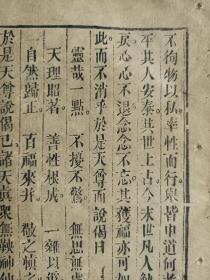 不徇物以狥率性而行㮣皆中道何
平其人安泰其世上古今末世凡人
戾心心不退念念不忘其獲福亦可
此而不消乎於是天尊而說偈曰
靈哉一點 不擾不驚 無思無慮
天理昭著 善性根成 一雜以
一自然歸正 百福來并 敬之
於是天尊說偈已諸天真眾無鞅神仙